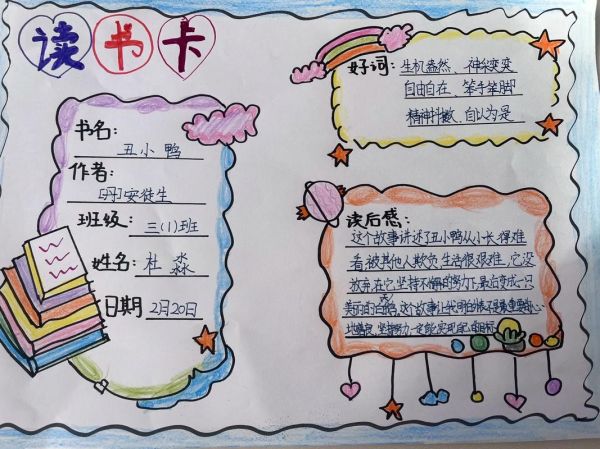 读书卡
书名：丑小鸭
作者：[丹]安徒生
班级：三(1)班
姓名：杜淼
日期 2月20日
好词：生机盎然、神采奕奕
自由自在、笨手笨脚
精神抖擞、自以为是
读后感：
这个故事讲述了丑小鸭从小长得难
看,被其他人欺负,生活很艰难,它没
放弃,在它坚持不懈的努力下,最后变成一只
美丽的白天鹅,这个故事让我明白
地善良,坚持努力一定能实现自己的